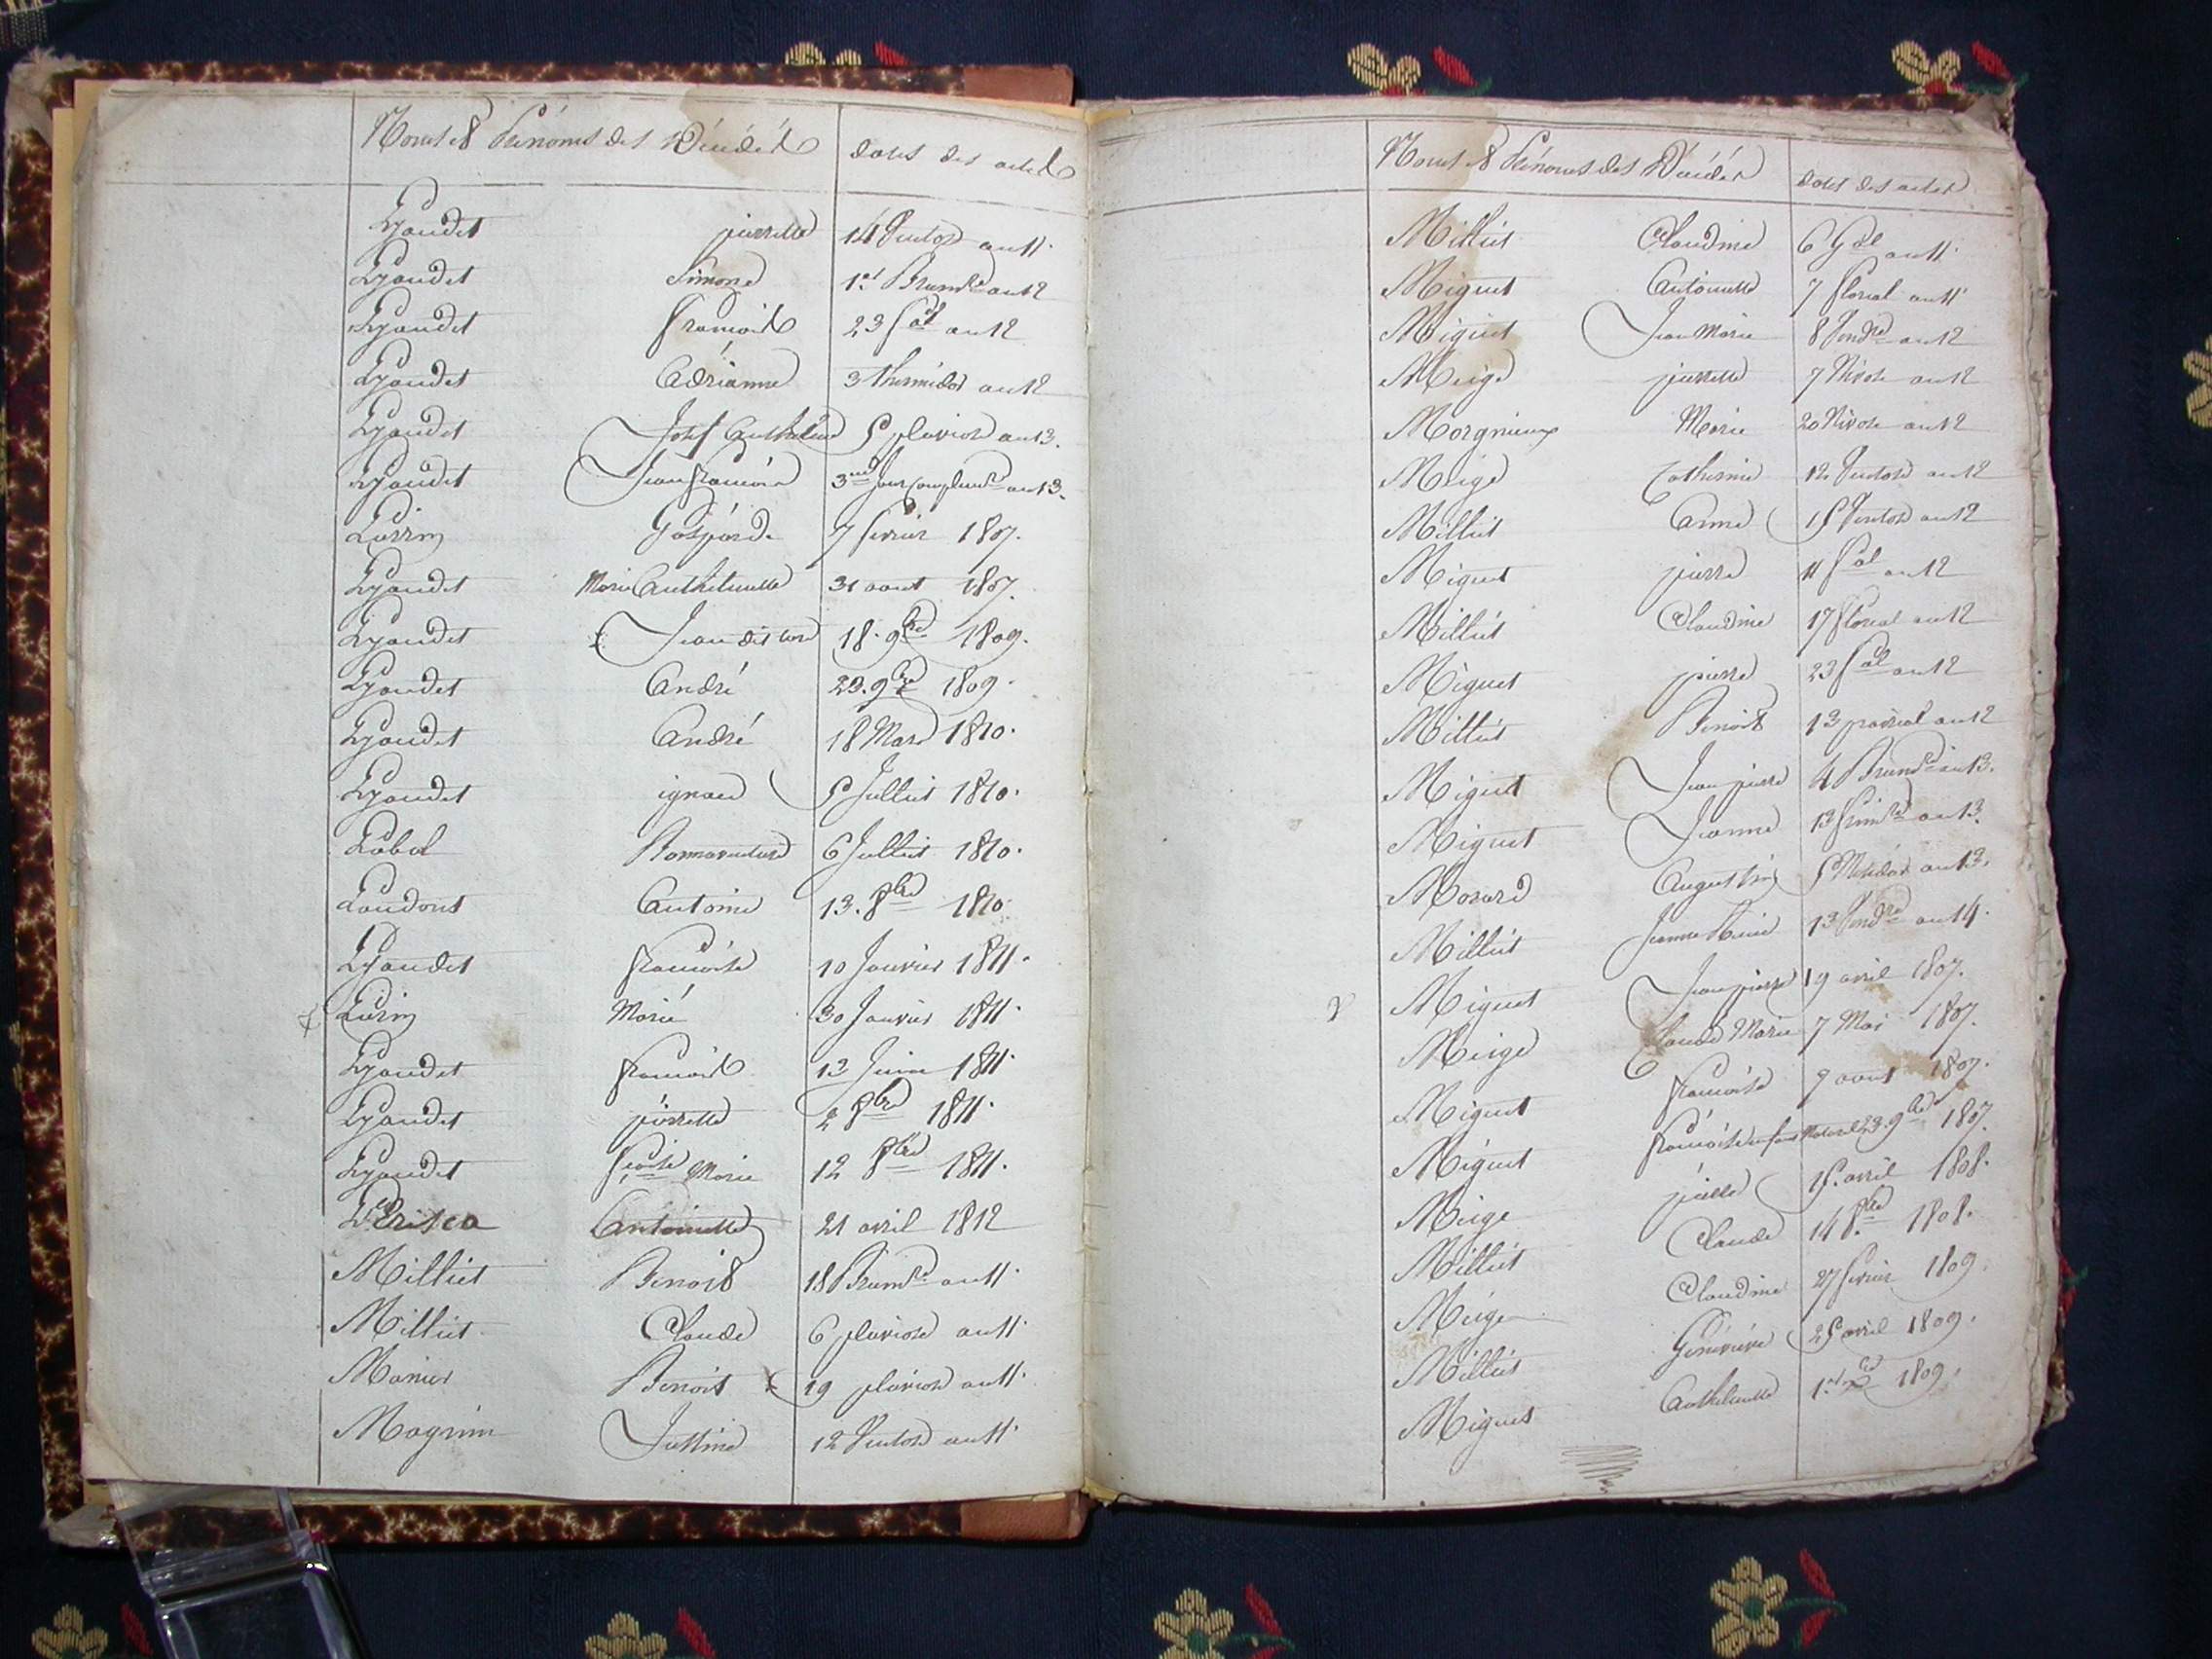 Noms et Prénoms des Décédés dates des actes
Lyaudet pierrette 14 Ventose an 11.
Lyaudet Simone 1er Brumre an 12
Lyaudet francois 23 an 12
Lyaudet Adrianne 3 thermidor an 12
Lyaudet Josef Anthelme 5 pluviose an 13.
Lyaudet Jean francois 3me Jour Complemre an 13.
Lurin Gaspard 7 fevrier 1807.
Lyaudet Marie Anthelmette 31 aout 1807.
Lyaudet Jean dit 18. 9bre 1809.
Lyaudet André 23. 9bre 1809.
Lyaudet André 18 Mars 1810.
Lyaudet ignace 5 Juillet 1810.
Labal Bonnaventure 6 Juillet 1810.
Antoine 13. 8bre 1810.
Lyaudet francoise 10 Janvier 1811.
Lurin Marie 30 Janvier 1811.
Lyaudet francois 13 Juin 1811.
Lyaudet pierrette 2 8bre 1811.
Lyaudet Marie 12 8bre 1811.
Antoinette 21 avril 1812
Milliet Benoit 18 Brumre an 11.
Milliet Claude 6 pluviose an 11.
Manier Benoit 19 pluviose an 11.
Magnin Justine 12 Ventose an 11.
Noms et Prénoms des Décédés dates des actes
Milliet Claudine 6 an 11.
Miguet Antoinette 7 floreal an 11
Miguet Jean Marie 8 Vendre an 12
Meige pierrette 7 Nivose an 12
Morgnieux Marie 20 Nivose an 12
Meige Catherine 12 Ventose an 12
Milliet Anne 15 Ventose an 12
Miguet pierre 11 an 12
Milliet Claudine 17 floreal an 12
Miguet pierre 23 an 12
Milliet Benoit 13 prairial an 12
Miguet Jean pierre 4 Brumre an 13.
Miguet Jeanne 13 frimre an 13.
Morard Augustin 5 Messidor an 13.
Milliet Jeanne Marie 13 Vendre an 14.
Miguet Jean pierre 19 avril 1807.
Meige Claude Marie 7 Mai 1807.
Miguet francoise 9 aout 1807.
Miguet francoise enfant naturel 23. 9bre 1807.
Meige 15. avril 1808.
Milliet Claude 14 8bre 1808.
Meige Claudine 27 fevrier 1809.
Milliet Génévieve 25 avril 1809.
Miguet Anthelmette 1er 1809.